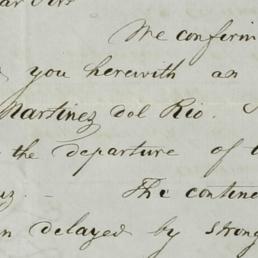 ar Sir
We confirm
you herewith an
Martinez del Rio.
the departure of
uz. – The contin
n delayed by strong